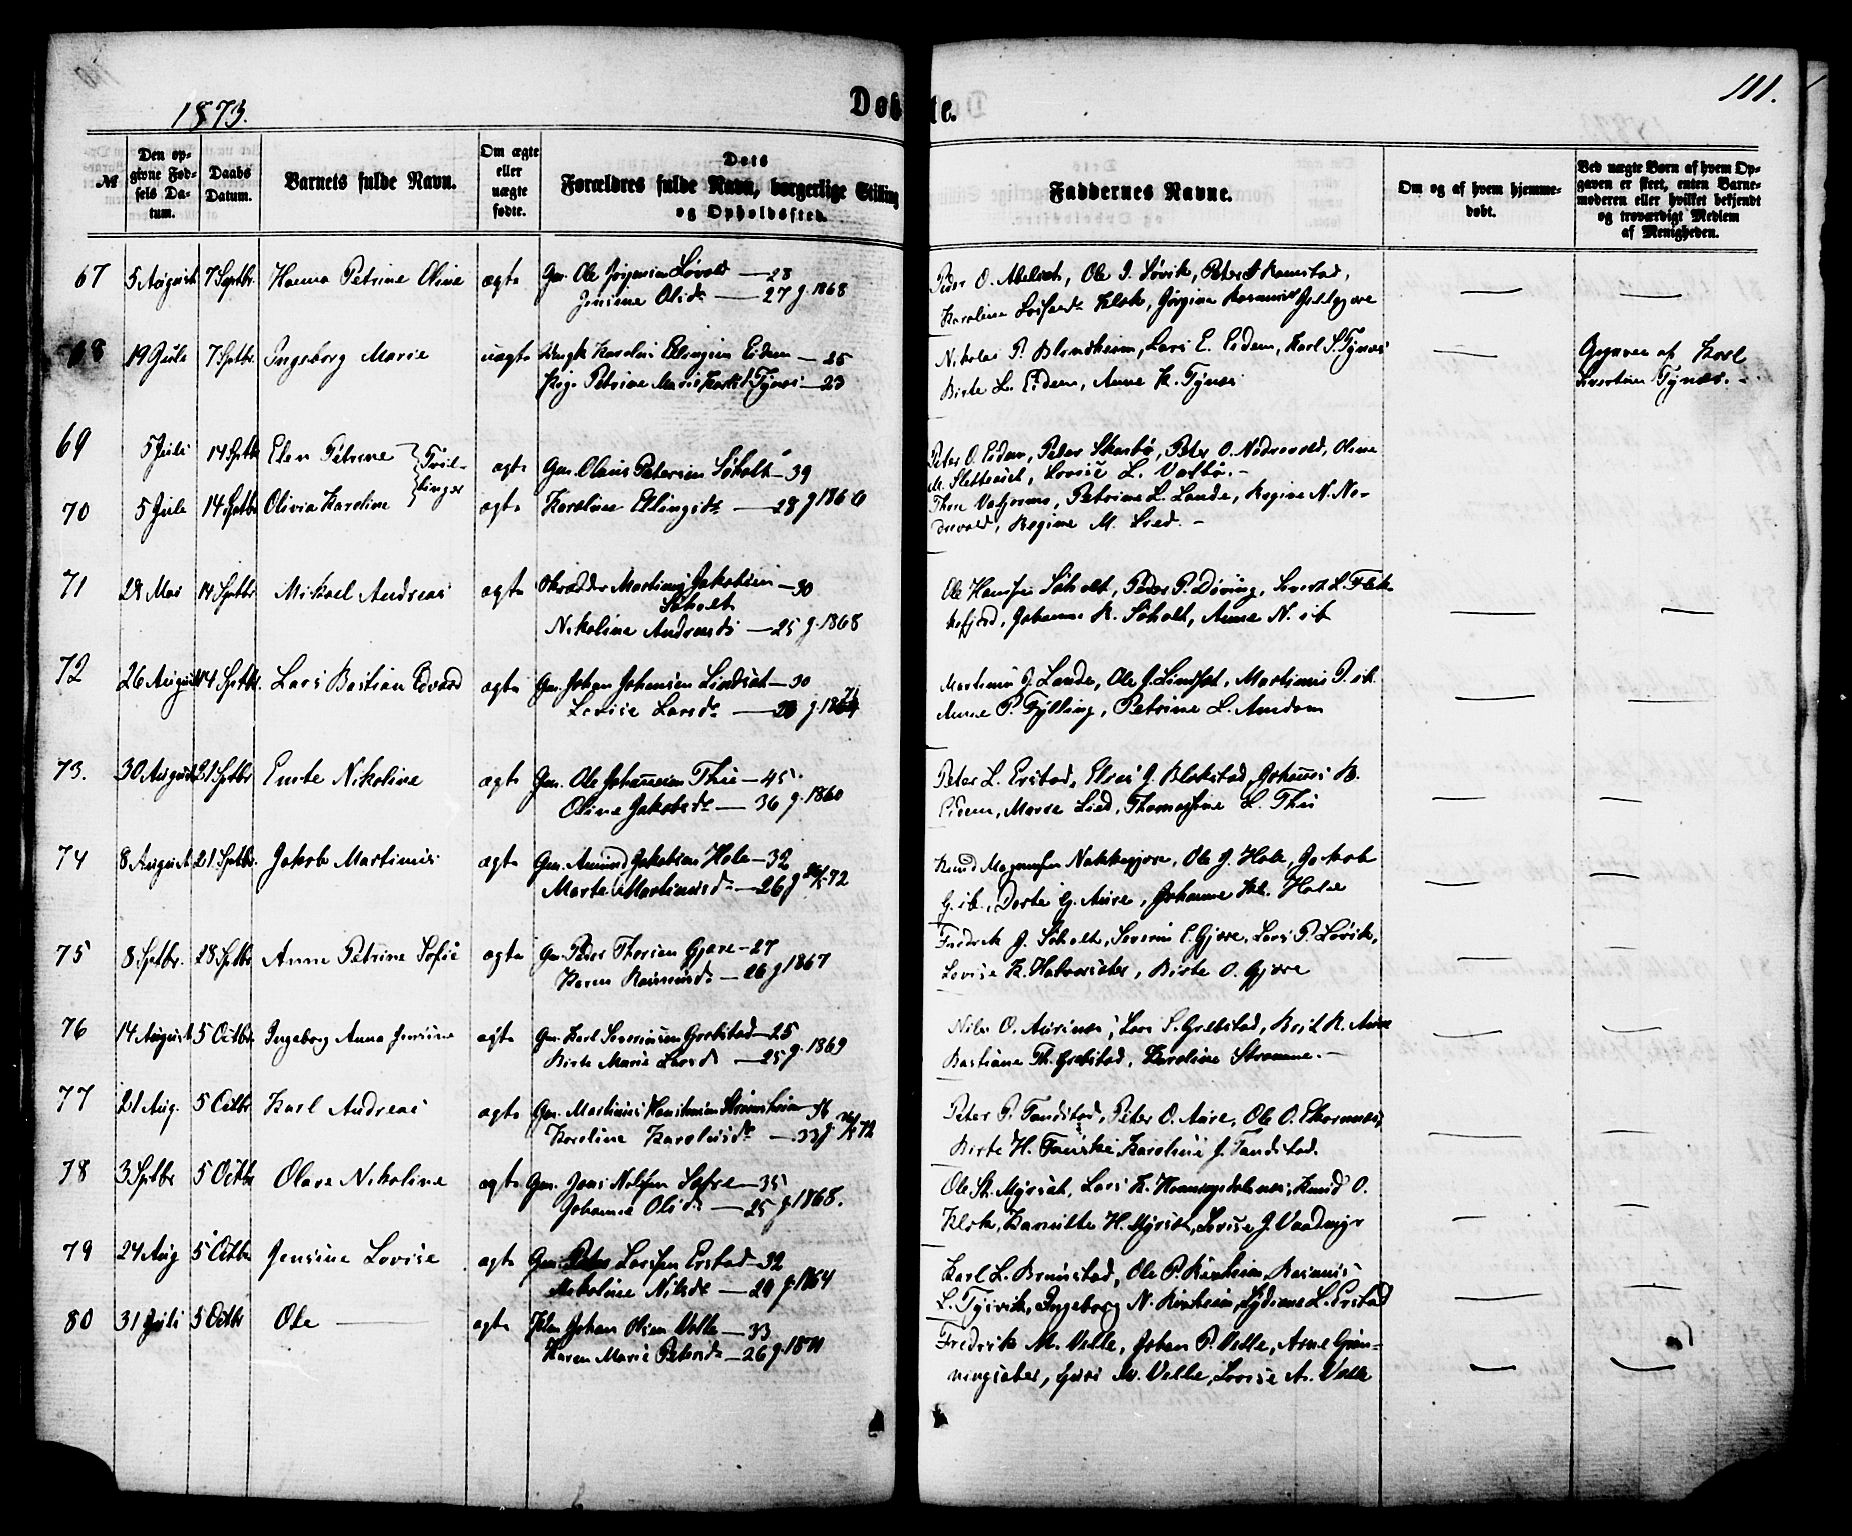 1873.
Døbte.
111.
№
Den opgivne Fødsels Datum.
Daabs Datum.
Barnets fulde Navn.
Om ægte eller uægte fødte.
Dets Forældres fulde Navn, borgerlige Stilling og Opholdssted.
Faddernes Navne.
Om og af hvem hjemmedøbt.
Ved uægte Børn af hvem Opgaven er skeet, enten Barnemoderen eller hvilket bekjendt og troværdigt Medlem af Menigheden.
67 5 August 7 Septbr. Hanna Petrine Oline ægte Gm. Ole Jørgensen Løvold — 28
Jensine Olsdr — 27 g. 1868
Peder O. Ole J. Løvik, Peter Ramstad,
Karoline Klok, Jørgine
68 19 Juli 7 Septbr Ingeborg Marie uægte Ungk. Karolus Ellingsen Eidem — 25
Pige Petrine Marie Tynes — 23
Nikolai P. Blindheim, Lars E. Eidem, Karl S. Tynes
Birte L. Eidem, Anne K. Tynes
Opgaven af Karl
Severtsen Tynæs. -
69 5 Juli 14 Septbr Elen Petrine Tvil- ægte Gm. Olaus Petersen Søholt — 39
70 5 Juli 14 Septbr Olivia Karoline linger ægte Karoline Ellingsdr — 28 g 1866
Peter O. Eidem, Peter Skarbø, Peter O. Nødrevold, Oline
M. Sletteset, Lovise L. -
Petrine L. Lande, Regine N. Nø-
drevold, Regine M. Lied. -
71 28 Mai 14 Septbr Mikael Andreas ægte Skrædder Martinus Jakobsen — 30
Søholt
Nikoline Andreasd. — 25 g. 1868
Ole Hansen Søholt, Peder P. Døving, Sivert L. Flek-
kefjord, Johanne K. Søholt, Anne N. ib
72 26 August 14 Septbr. Lars Bastian Edvard ægte Gm. Johan Johansen Lindset — 30
Lovise Larsdr
Martinus J. Lande, Ole J. Lindset, Martinus P. ib.
Anne P. Fylling, Petrine L. Amdam
73. 30 August 21 Septbr Emte Nikoline ægte Gm. Ole Johannesen Thue — 45
Oline Jakobsdr — 36 g. 1860
Peter L. Erstad, Elias J. Blakstad, Johannes B.
Eidem, Marse Lied, Thomasine L. Thue
74 8 August 21. Septbr. Jakob Martinus ægte Gm. Amund Jakobsen Hole — 32
Marta Martinusdr — 26 g 72
Knud Magnusen Nakkegjære, Ole J. Hole, Jakob
G. ib., Dorte G. Aure, Johanne Kl. Hole
75 8 Septbr. 28 Septbr Anne Petrine Sofie ægte Gm. Peder Thorsen Gjære — 27
Karen Rasmusd. — 26 g 1867
Fredrik J. Søholt, Severin E. Gjære, Lars P. Løvik,
Lovise K. Birte O. Gjære
76 14 August 5 Octbr Ingeborg Anna Jensine ægte Gm. Karl Severinsen Grebstad — 25
Birte Marie Larsd. — 25 g. 1869
Nils O. Aurenes, Lars S. Grebstad, Berit K. Aure
Bastiane Th. Grebstad, Karoline Stramme. -
77 21 Aug. 5 Octbr Karl Andreas ægte Gm. Martinus
Karoline Karolusdr — 33 g. 72
Peter P. Tandstad, Peter O. Aure, Ole O. Ekornnes,
Birte H. Fauske, Karoline J. Tandstad.
78 3 Septbr 5 Octbr Olave Nikoline ægte Gm. Jens Nilsen Sefre — 35
Johanne Olsdr — 25 g. 1868.
Ole St. Myrset, Lars K. Knud O.
Klok, Kamille H. Myrset, Lovise J. Vaadmyr
79 24 Aug 5 Octbr Jensine Lovise ægte Gm. Peter Larsen Erstad — 32
Nikoline Nilsdr — 29 g. 1864
Karl L. Brunstad, Ole P. Runheim, Rasmus
L. Tusvik, Ingeborg N. Runheim, Lydiane L. Erstad
80 31 Juli 5 Octbr Ole — ægte Johan Olsen Velle — 33
Karen Marie Petersdr — 26 g. 1871
Fredrik M. Velle, Johan P. Velle, Arne Grøn-
ningsæter, Guri M. Velle, Lovise A. Velle